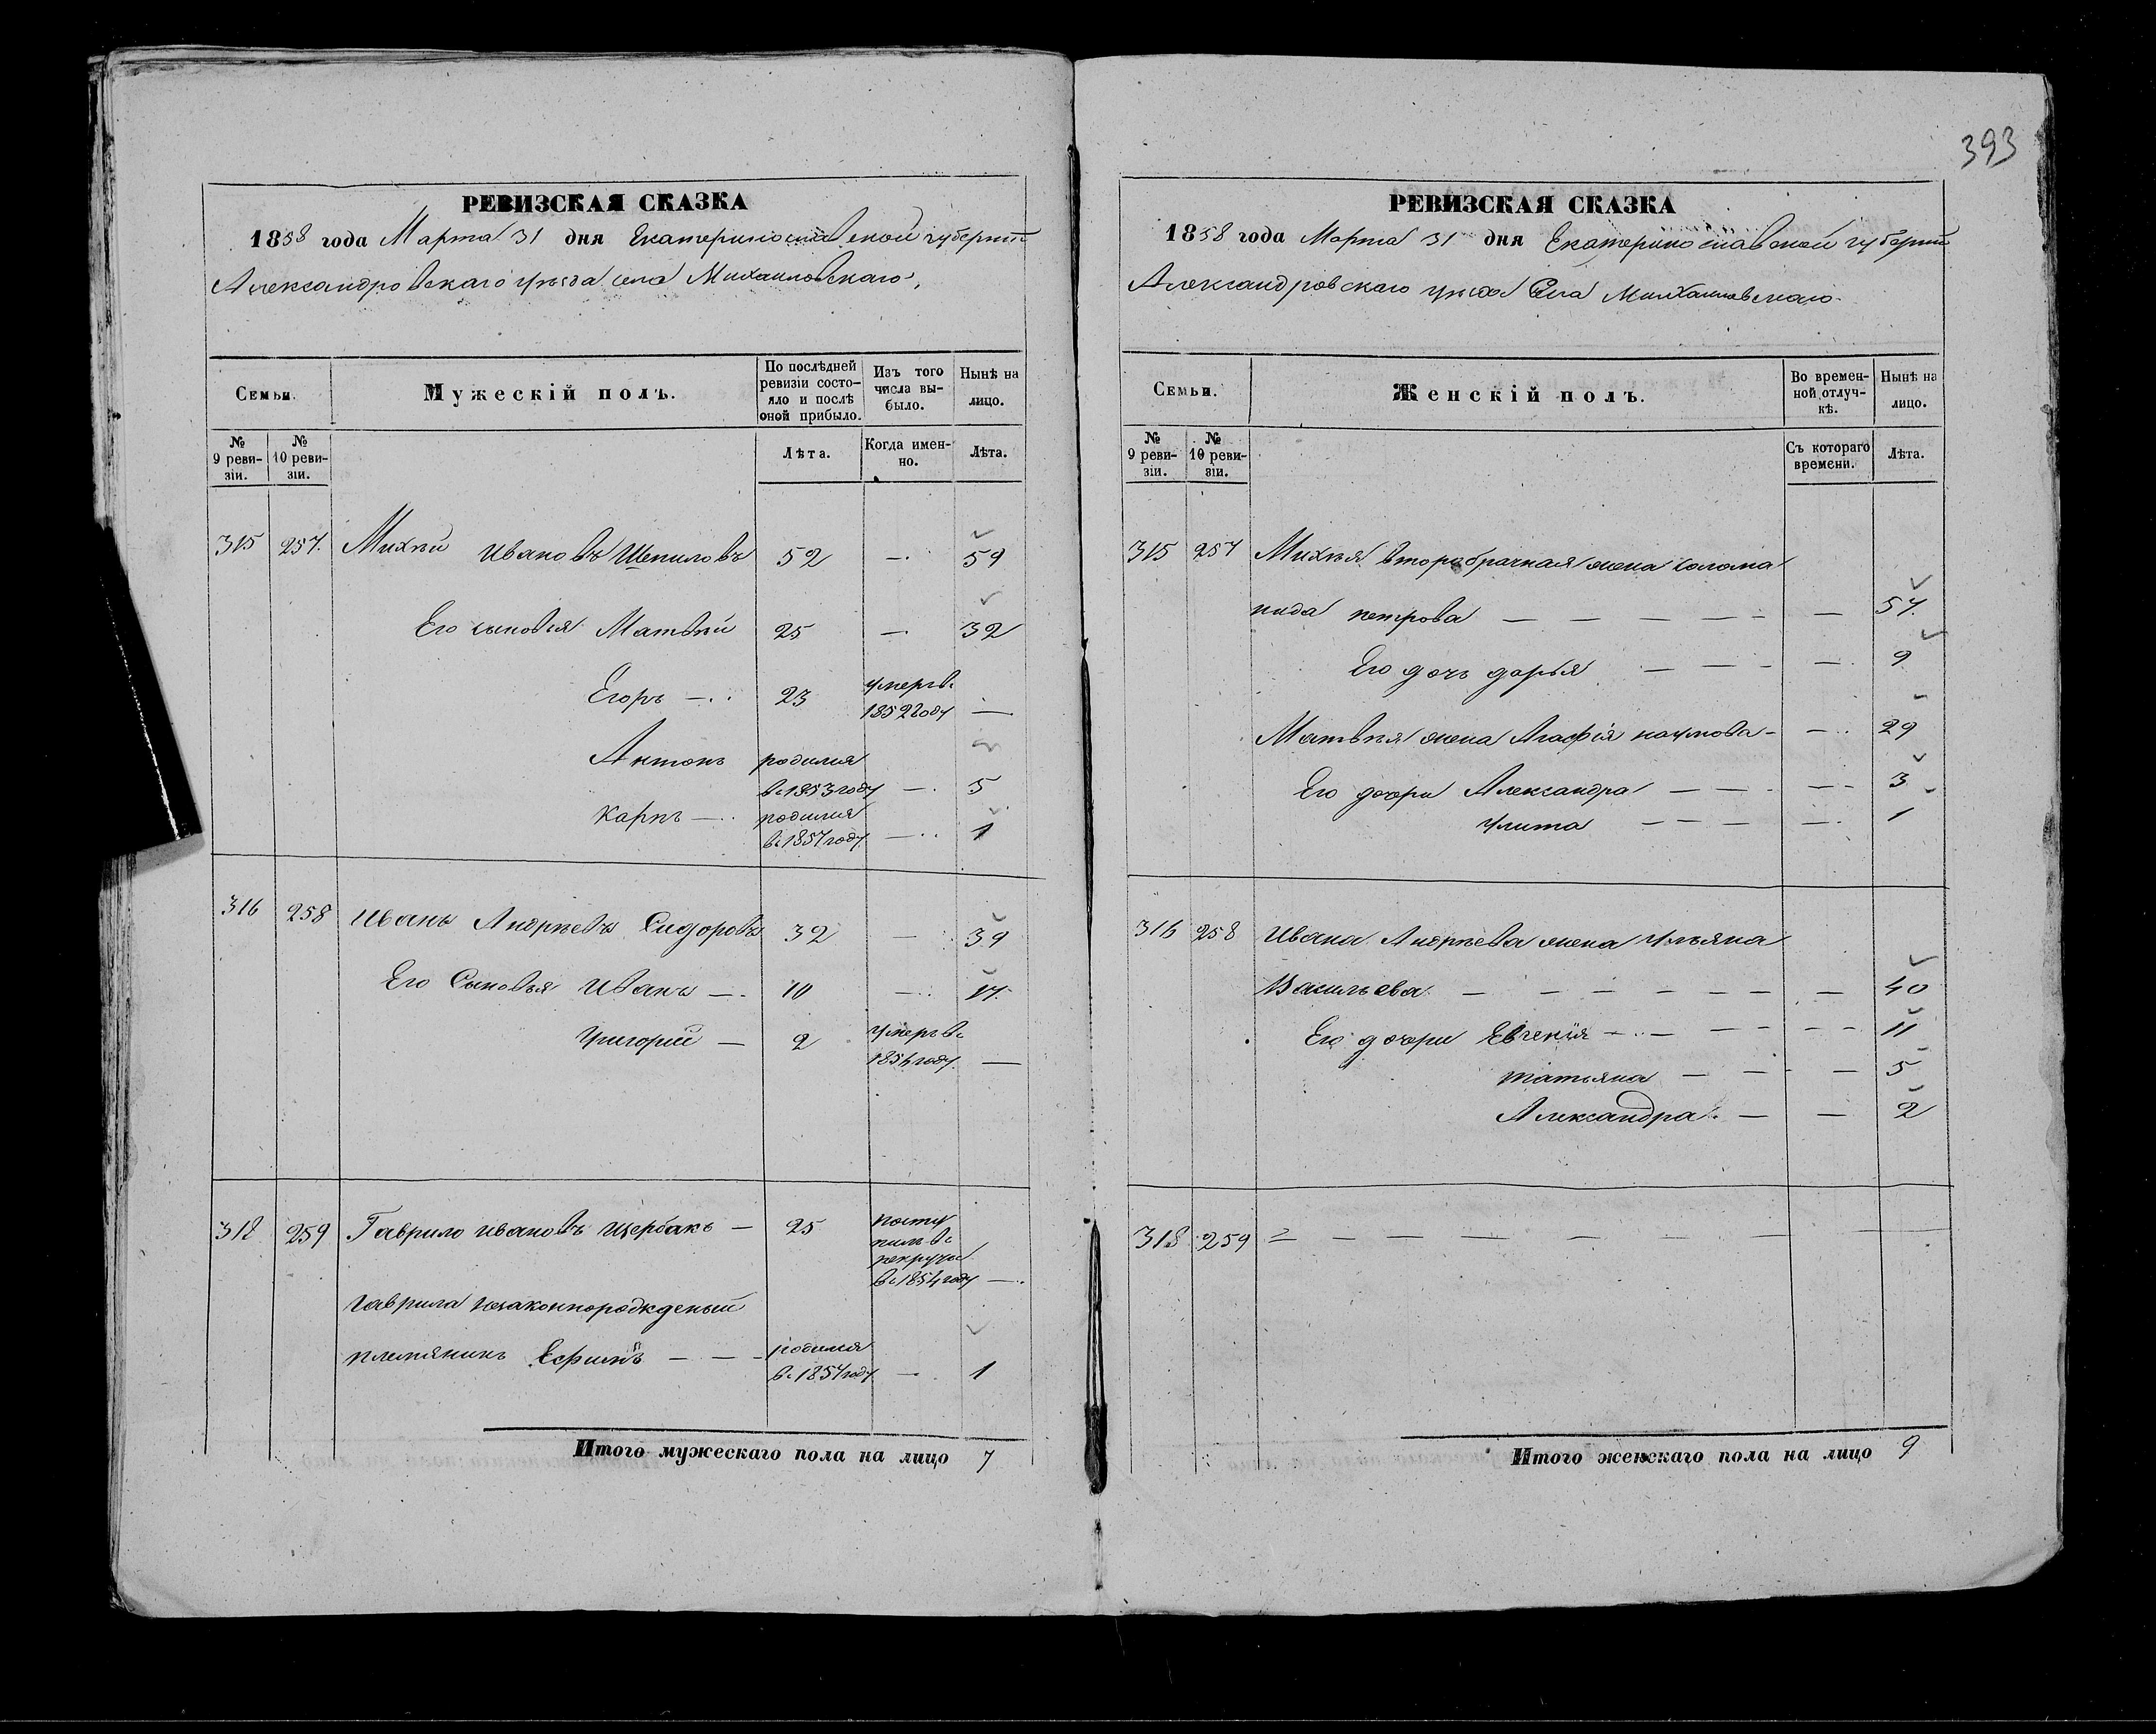 393
РЕВИЗСКАЯ СКАЗКА
1858 года Марта 31 дня Екатеринославской губерніи
Александровскаго уѣзда села Михайловскаго,
Семьи.
Мужескій полъ.
По послѣдней ревизіи состояло и послѣ оной прибыло.
Изъ того числа выбыло.
Нынѣ на лицо.
№ 9 ревизіи.
№ 10 ревизіи.
Лѣта.
Когда именно.
Лѣта.
315 257. Михѣй Ивановъ Шепиловъ 52 — 59
Его сыновья Матвѣй 25 — 32
Егоръ — 23 умеръ въ 1852 году —
Антонъ родился въ 1853 году — 5
Карпъ — родился въ 1857 году — 1
316 258 Иванъ Андрѣевъ Сидоровъ 32 — 39
Его Сыновья Иванъ — 10 — 17.
Григорій — 2 умеръ въ 1854 году. —
318 259 Гаврило Ивановъ Щербакъ — 25 поступилъ въ рекруты въ 1854 году —
Гаврила незаконнорожденый
племяникъ Ефимъ — — — родился въ 1857 году — 1
Итого мужескаго пола на лицо 7
РЕВИЗСКАЯ СКАЗКА
1858 года Марта 31 дня Екатеринославской губерніи
Александровскаго уѣзда Села Михайловскаго.
Семьи.
Женскій полъ.
Во временной отлучкѣ.
Нынѣ на лицо.
№ 9 ревизіи.
№ 10 ревизіи.
Съ котораго времени.
Лѣта.
315 257 Михѣя второбрачная жена Солома
нида петрова — — — — — — 57.
Его дочь дарья — — — — 9
Матвѣя жена Агафія наумова — — 29
Его дочери Александра — — — — 3
Улита — — — — 1
316 258 Ивана Андрѣева жена Ульяна
Васильева — — — — — — — — 40
Его дочери Евгенія — — — — — 11
татьяна — — — — 5
Александра. — — 2
318 259 — — — — — — —
Итого женскаго пола на лицо 9